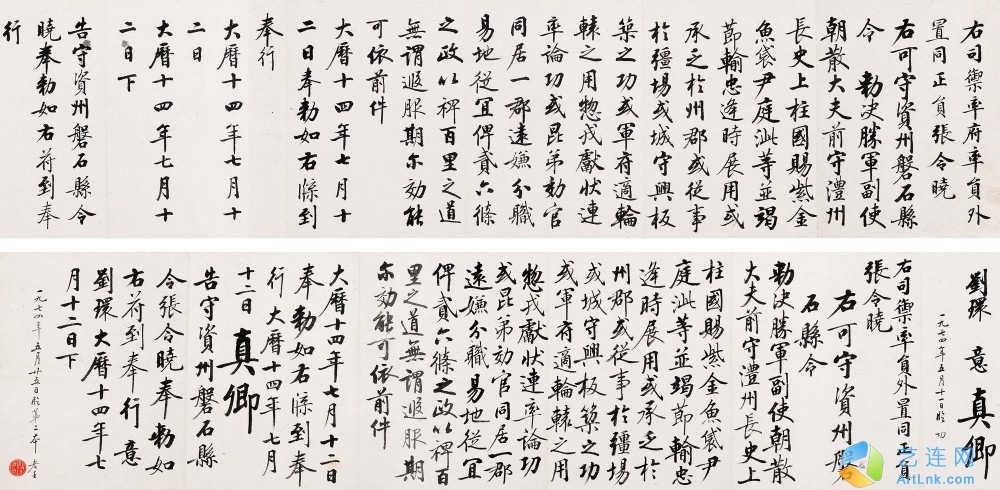 右司禦率府率貟外
置同正貟張令曉
右可守資州磐石縣
令 勅決勝軍副使
朝散大夫前守澧州
長史上柱國賜紫金
魚袋尹庭訕等並竭
節輸忠逢時展用或
承乏於州郡或從事
於疆場或城守興板
築之功或軍府適輪
轅之用惣戎獻狀連
率論功或昆弟効官
同居一郡遠嫌分職
易地從冝俾貳六條
之政以裨百里之道
無謂遐服期尓効能
可依前件
大曆十四年七月十
二日奉勅如右牒到
奉行
大曆十四年七月十
二日
大曆十四年七月十
二日下
告守資州磐石縣令
曉奉勅如右符到奉
行
劉環 意 真卿
一九七四年五月十一日臨
右司禦率貟外置同正貟
張令曉
右可守資州磐
石縣令
勅決勝軍副使朝散
大夫前守澧州長史上
柱國賜紫金魚袋尹
庭訕等並竭節輸忠
逢時展用或承乏于
州郡或從事於疆場
或城守興板築之功
或軍府適輪轅之用
惣戎獻狀連率論功
或昆弟効官同居一郡
遠嫌分職易地從冝
俾貳六條之政以裨百
里之道無謂遐服期
尓効能可依前件
大曆十四年七月十二日
奉勅如右牒到奉
行 大曆十四年七月
十二日 真卿
告守資州磐石縣
令張令曉奉勅如
右符到奉行 意
劉環 大曆十四年七
月十二日下
一九七四年五月廿五日臨第二本
艺连网
ArtLnk.com